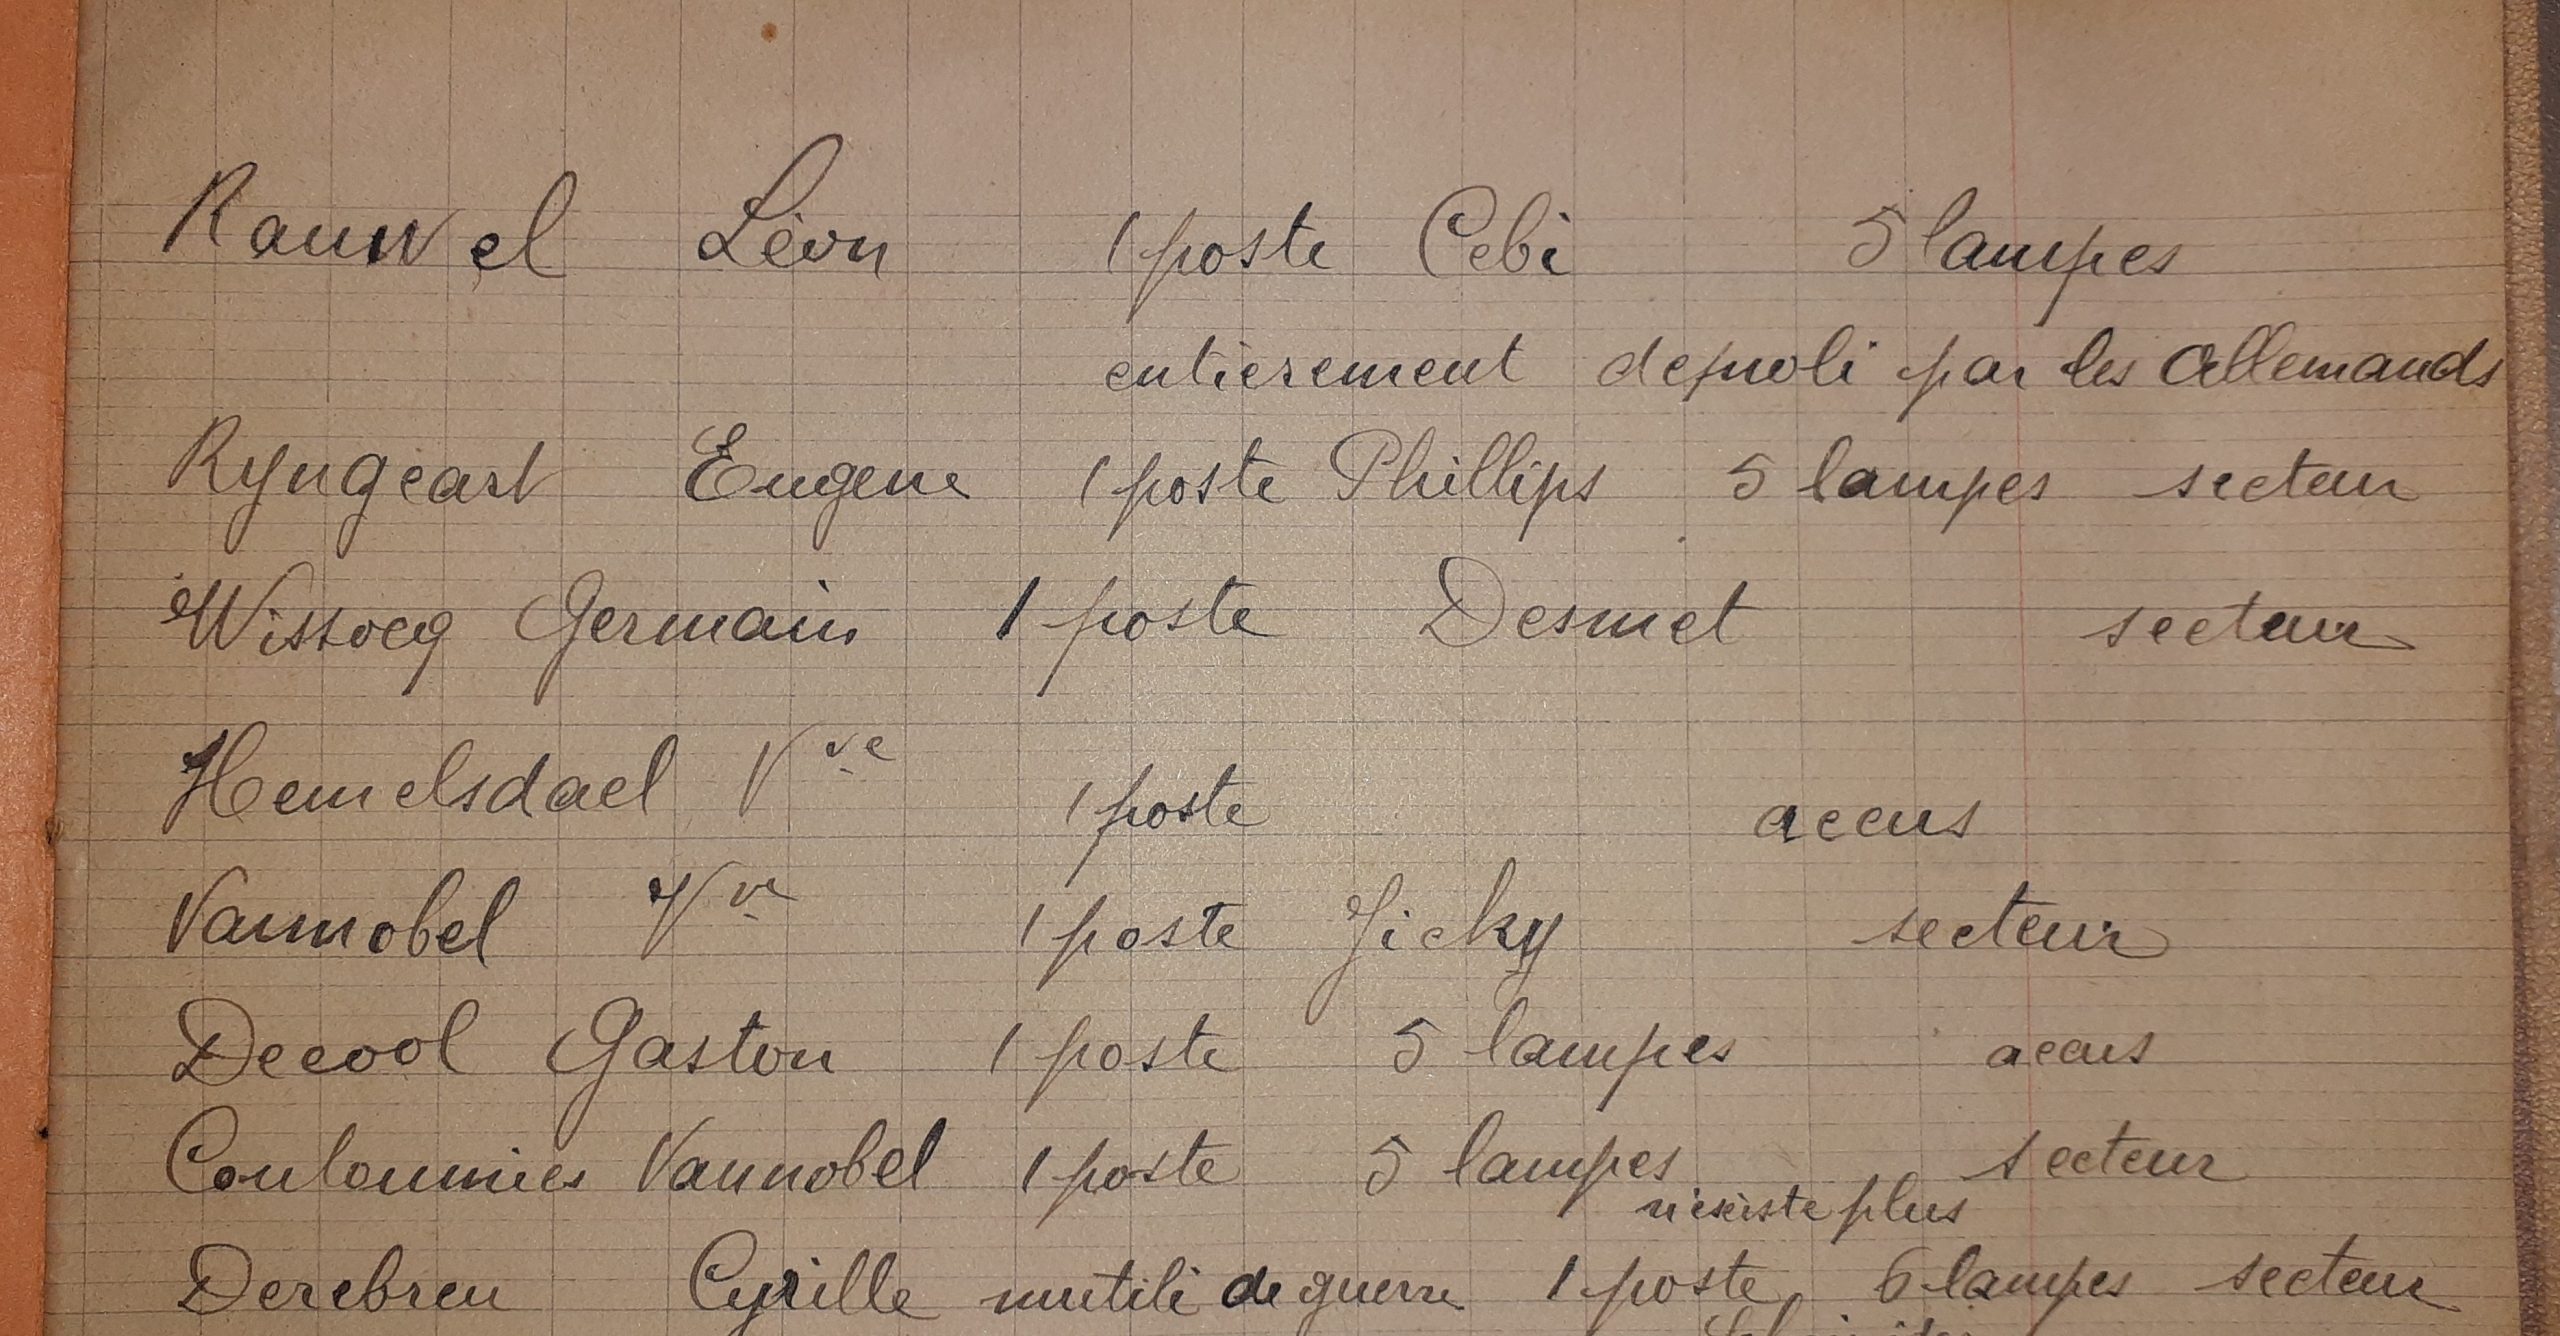 Rauwel Léon 1 poste Cebi 5 lampes
entierement demoli par les Allemands
Ryngeart Eugene 1 poste Phillips 5 lampes secteur
Wissocq Germain 1 poste Desmet secteur
Hemelsdael Vve 1 poste accus
Vannobel Vve 1 poste Jicky secteur
Decool Gaston 1 poste 5 lampes accus
Couloumies Vannobel 1 poste 5 lampes secteur
n'existe plus
Derebreu Cyrille mutilé de guerre 1 poste 6 lampes secteur